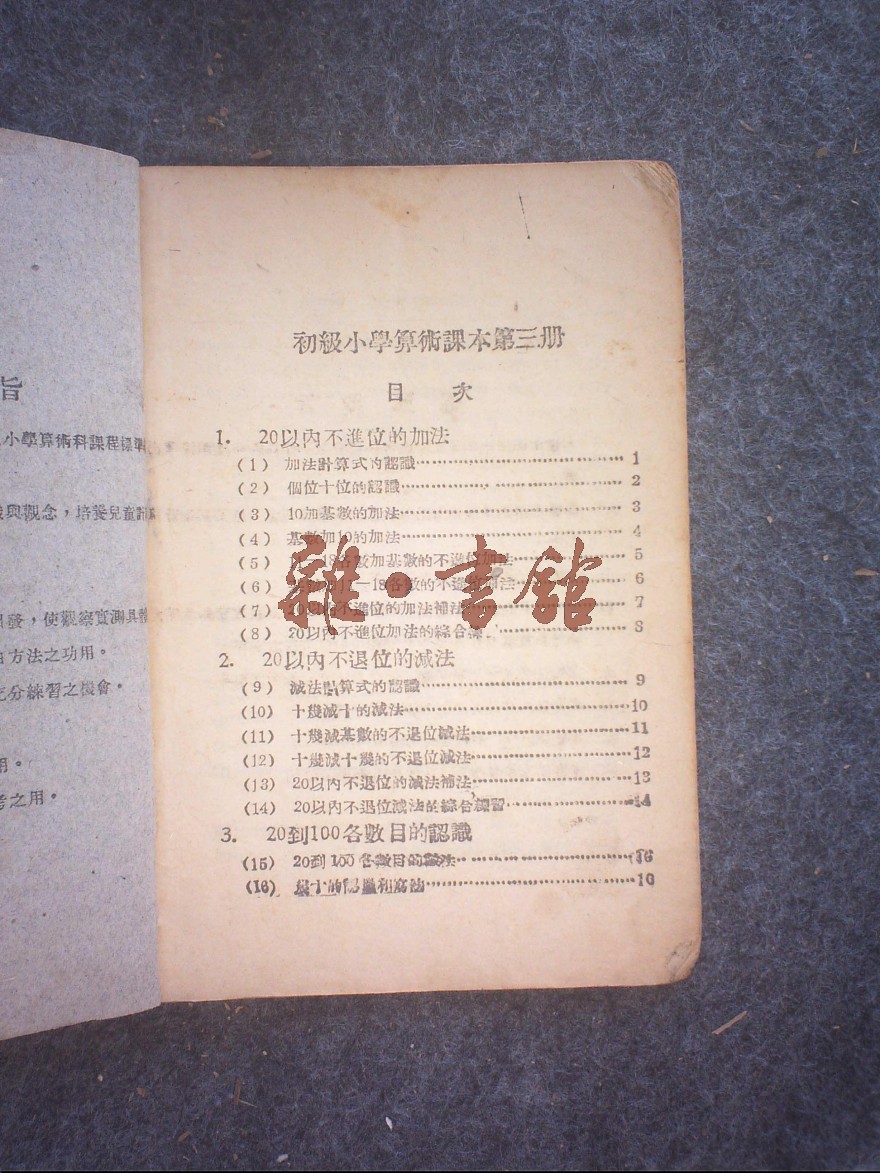 旨
小學算術科課程標準
與觀念，培養兒童計
發，使觀察實測具體
方法之功用。
充分練習之機會。
用。
考之用。
初級小學算術課本第三册
目 次
1. 20以內不進位的加法
(1) 加法計算式的認識 1
(2) 個位十位的認識 2
(3) 10加基數的加法 3
(4) 基數加10的加法 4
(5) 18各數加基數的不進位加法 5
(6) 18各數的不進位加法 6
(7) 20以內不進位的加法補法 7
(8) 20以內不進位加法的綜合練 8
2. 20以內不退位的減法
(9) 減法計算式的認識 9
(10) 十幾減十的減法 10
(11) 十幾減基數的不退位減法 11
(12) 十幾減十幾的不退位減法 12
(13) 20以內不退位的減法補法 13
(14) 20以內不退位減法的綜合練習 14
3. 20到100各數目的認識
(15) 20到100各數目的
(16)
雜·書館